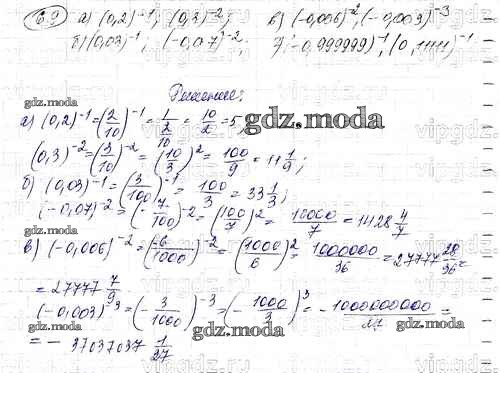 6.9 а) (0,2)⁻¹; (0,3)⁻²; в) (-0,006)⁻², (-0,003)⁻³
б) (0,03)⁻¹; (-0,07)⁻²; (-0,999999)⁻¹, (0,1111)⁻¹
Решение:
а) (0,2)⁻¹ = (2/10)⁻¹ = 1/(2/10) = 10/2 = 5,
gdz.moda
(0,3)⁻² = (3/10)⁻² = (10/3)² = 100/9 = 11 1/9;
б) (0,03)⁻¹ = (3/100)⁻¹ = 100/3 = 33 1/3;
(-0,07)⁻² = (-7/100)⁻² = (100/7)² = 10000/7 = 1428 4/7
в) (-0,006)⁻² = (-6/1000)⁻² = (1000/6)² = 1000000/36 = 27777 28/36 =
= 27777 7/9
(-0,003)⁻³ = (-3/1000)⁻³ = (-1000/3)³ = -1000000000/27 =
= - 37037037 1/27
gdz.moda
gdz.moda
gdz.moda
vipgdz